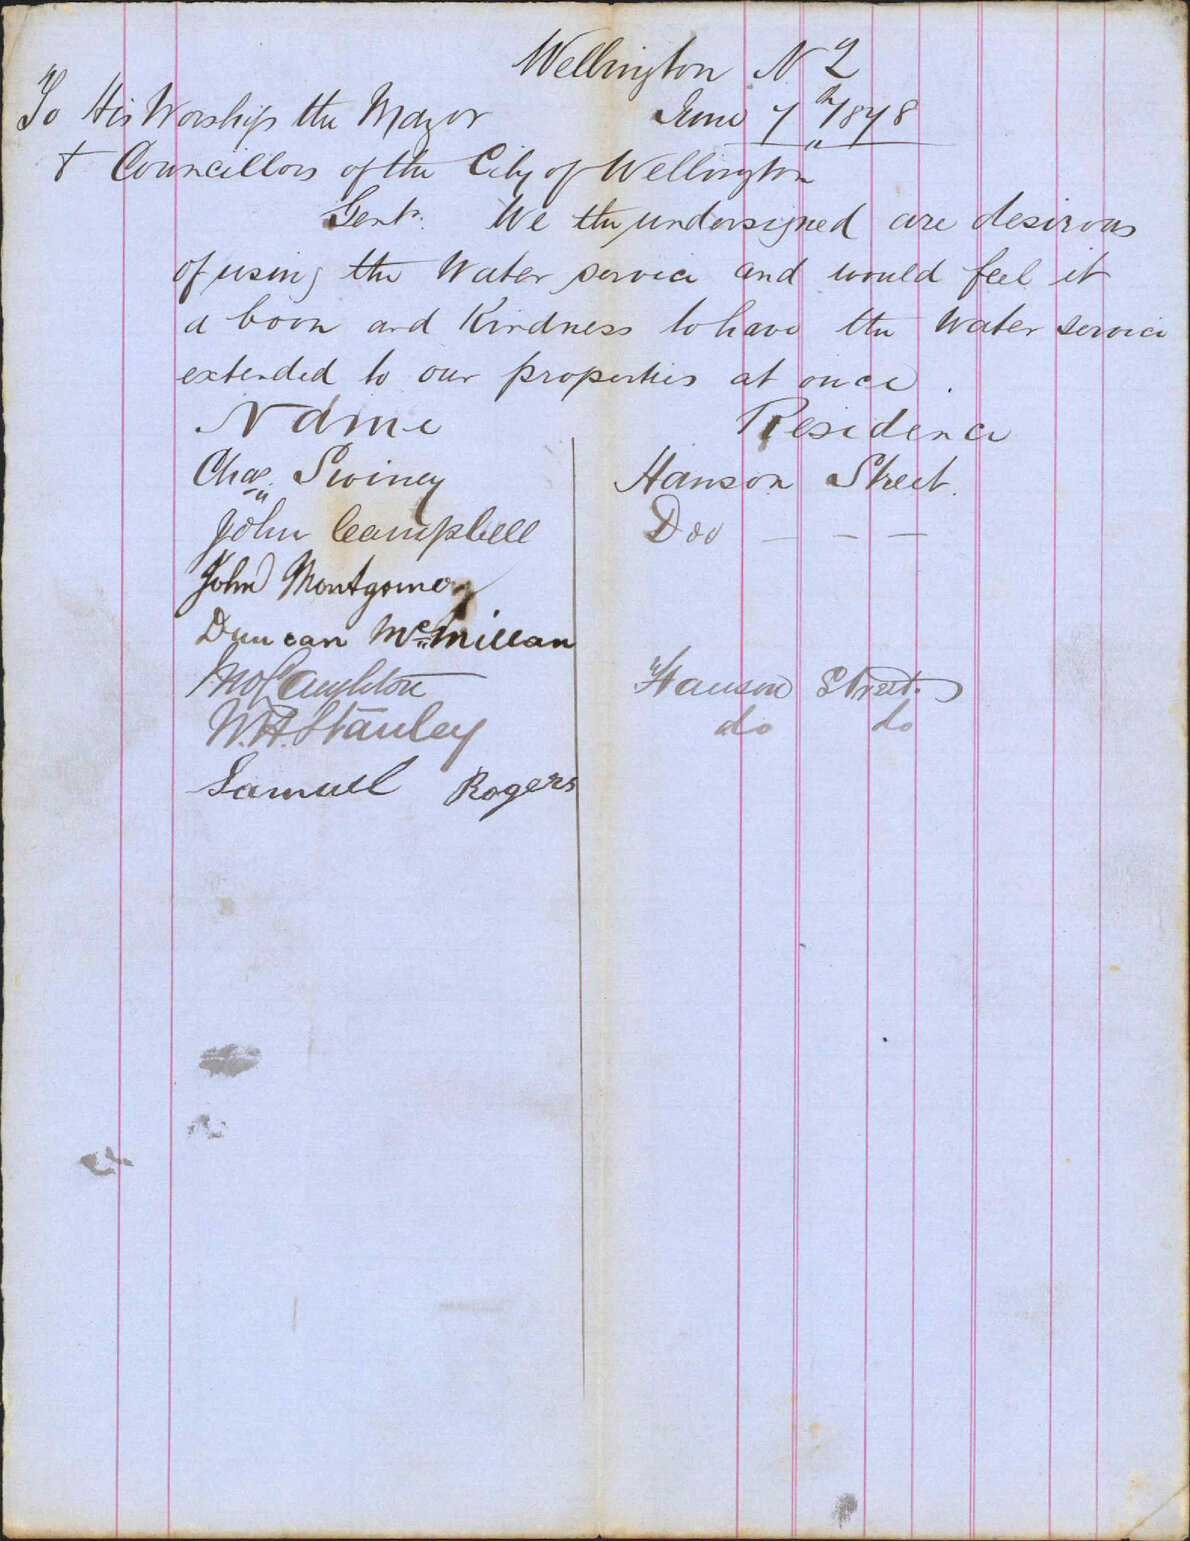 Wellington N Z
To His Worship the Mayor June 7th 1878
& Councillors of the City of Wellington
Gents. We the undersigned are desirous
of using the Water service and would feel it
a boon and Kindness to have the Water service
extended to our properties at once.
Name Residence
Chas. Swiney Hanson Street.
John Campbell Doo — — —
John Montgomery
Duncan McMillan
Hanson Street.
W. H. Stanley do do
Samuel Rogers